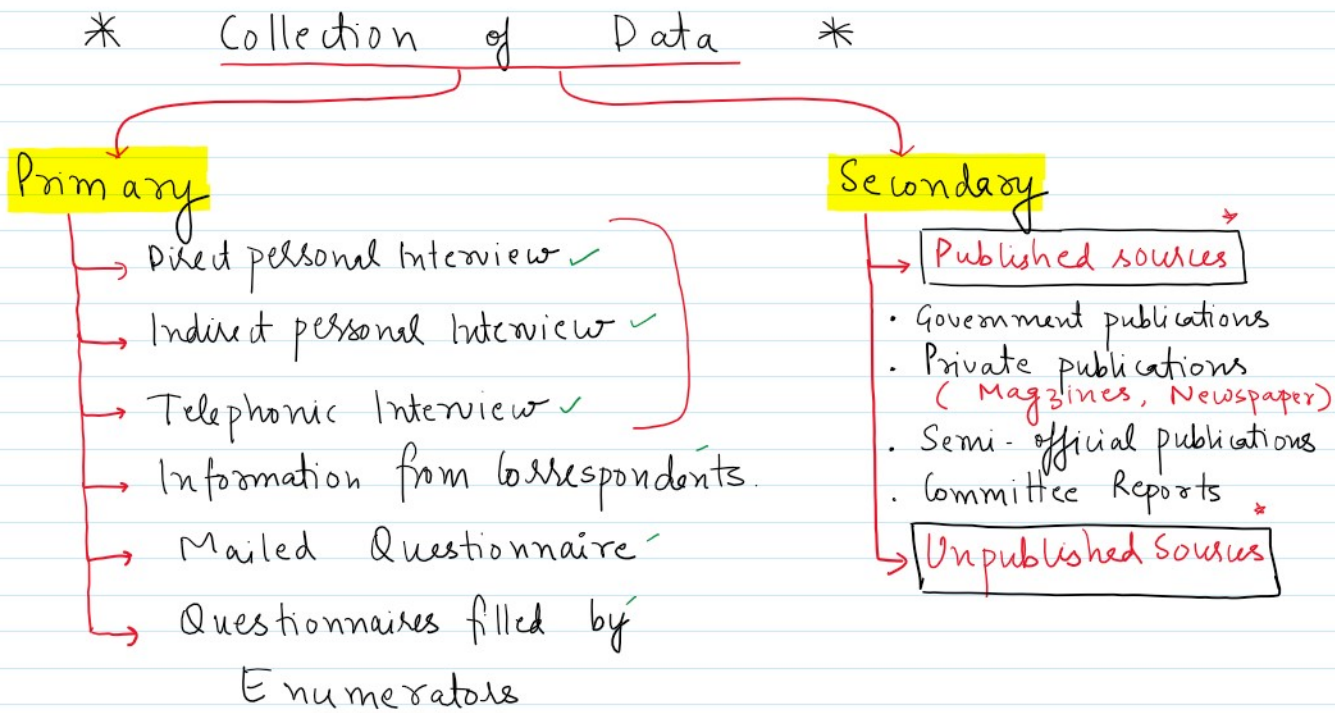 * Collection of Data *
Primary
Direct personal Interview ✓
Indirect personal Interview ✓
Telephonic Interview ✓
Information from Correspondents.
Mailed Questionnaire
Questionnaires filled by
Enumerators
Secondary
Published sources *
• Government publications
• Private publications
( Magzines, Newspaper)
• Semi-official publications
• Committee Reports
Unpublished Sources *